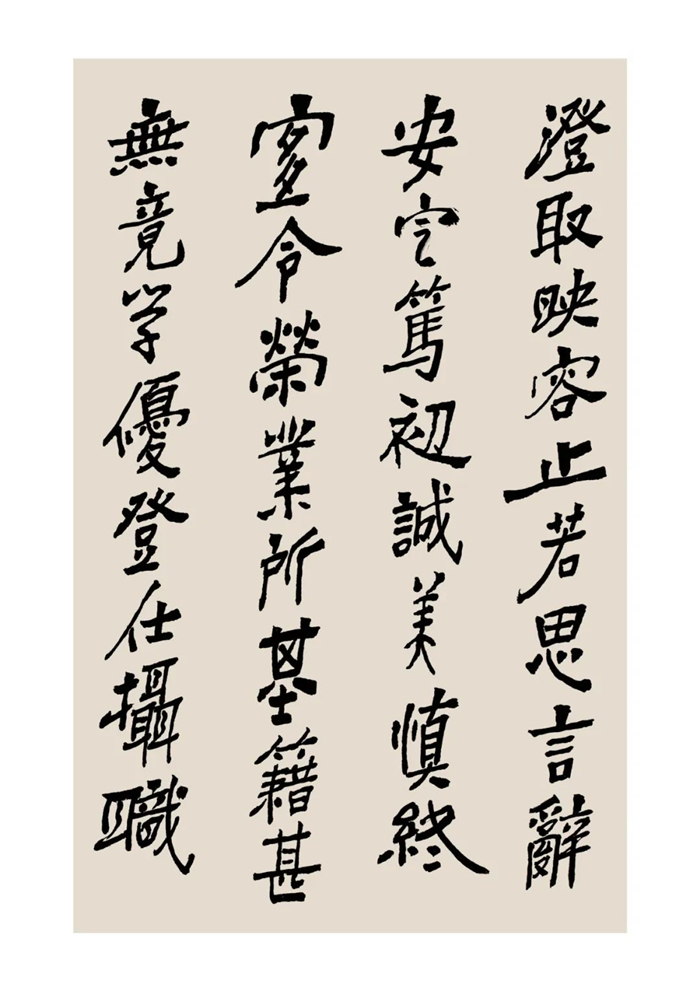 澄取映容止若思言辭
安定篤初誠美慎終
宜令榮業所基籍甚
無竟学優登仕攝職